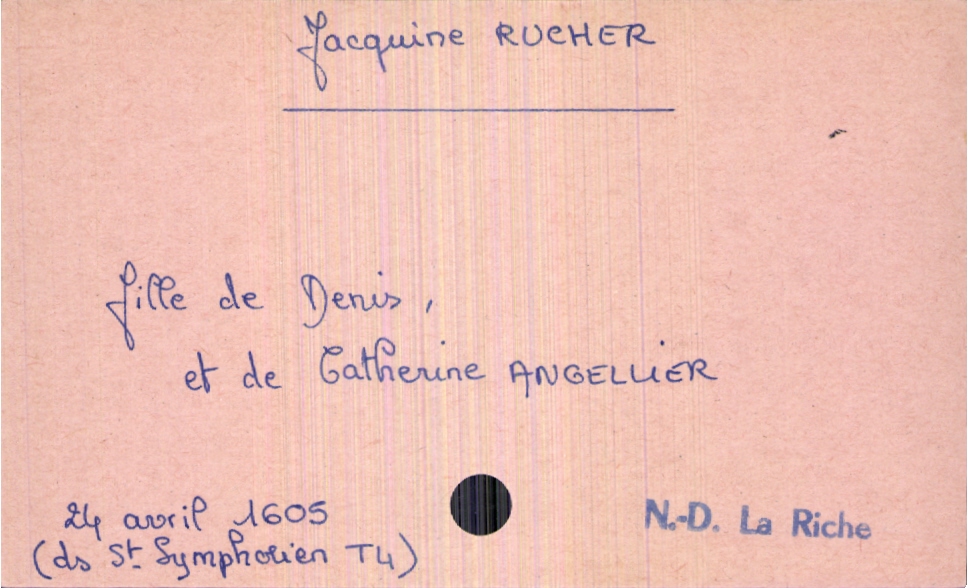 Jacquine RUCHER
fille de Denis,
et de Catherine ANGELLIER
24 avril 1605
(ds St Symphorien T4)
N.-D. La Riche